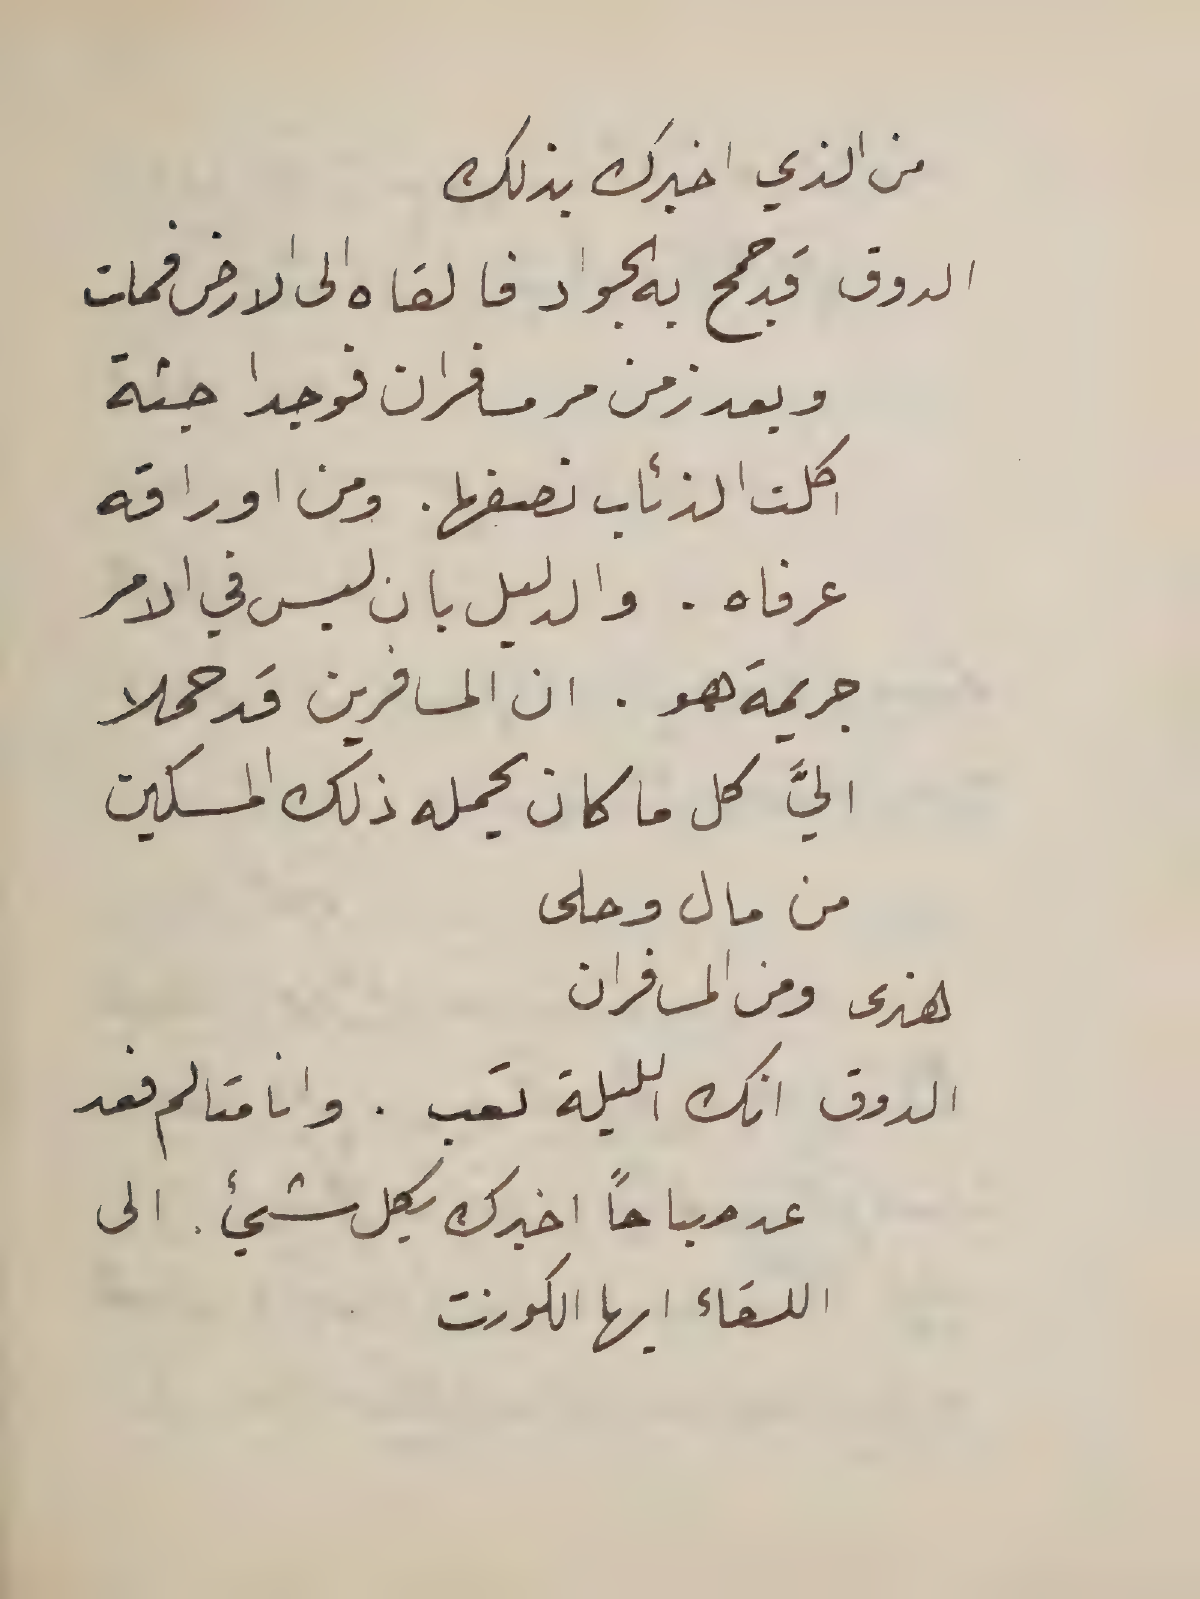 من الذي اخبرك بذلك
الدوق قد جمح به الجواد فالقاه الى الارض فمات
وبعد زمن مر مسافران فوجدا جثة
اكلت الذئاب نصفها . ومن اوراقه
عرفاه . والدليل بان ليس في الامر
جريمة هو . ان المسافرين قد حملا
اليَّ كل ما كان يحمله ذلك المسكين
من مال وحلى
هنرى ومن المسافران
الدوق انك الليلة تعب . وانا متالم فعد
عد صباحاً اخبرك بكل شيئ . الى
اللقاء ايها الكورنت